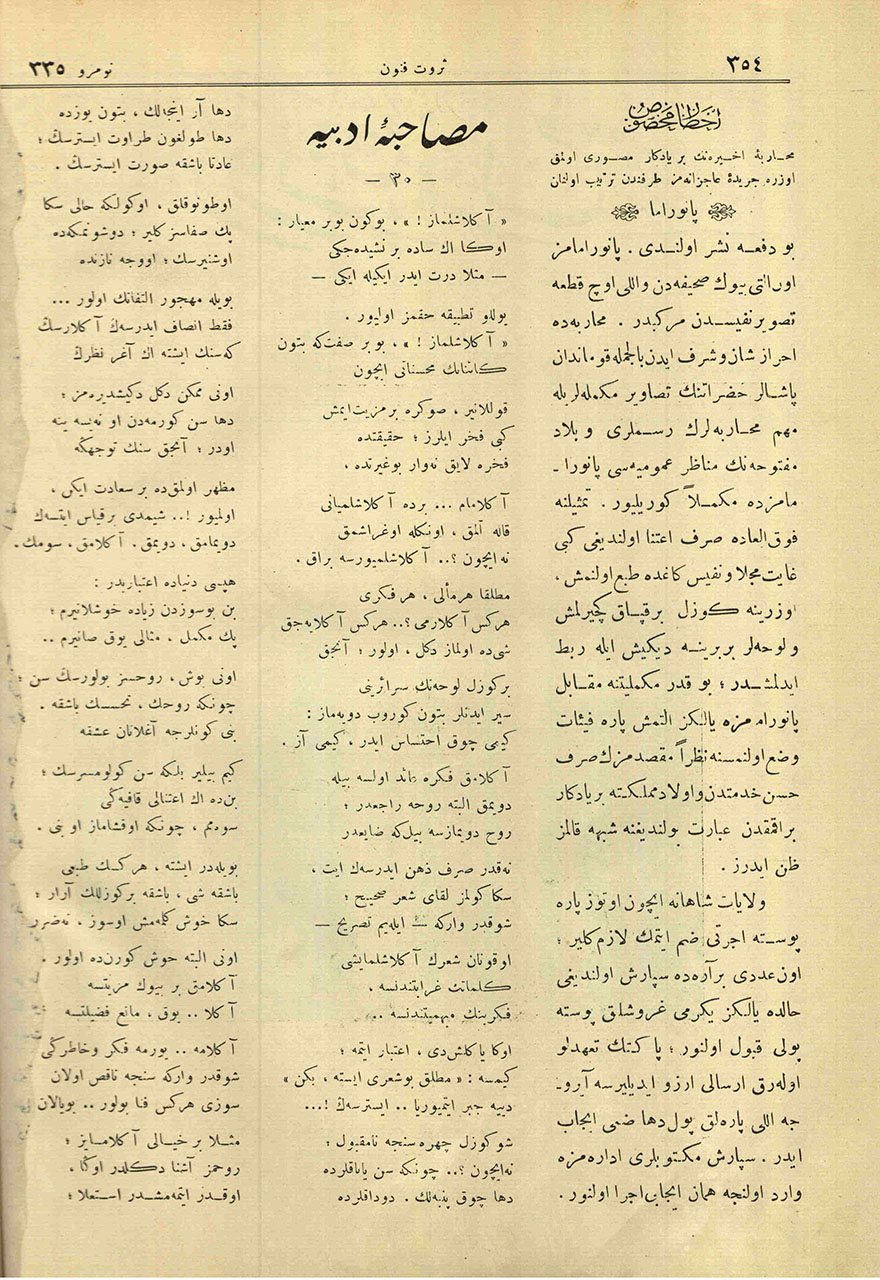 ٣٥٤
ثروت فنون
نومرو ٣٣٥
اخطار مخصوص
محاربهٔ اخیره‌نك بر یادكار مصوری اولمق
اوزره جریدهٔ عاجزانه‌مز طرفندن ترتیب اولنان
پانوراما
بو دفعه نشر اولندی . پانورامامز
اورانتی بیوك صحیفه‌دن واللی اوچ قطعه
تصویر نفیسدن مركبدر . محاربه‌ده
احراز شان وشرف ایدن بالجمله قوماندان
پاشالر حضراتنك تصاویر مكمله‌لریله
مهم محاربه‌لرك رسملری وبلاد
مفتوحه‌نك مناظر عمومیه‌سی پانورا ـ
مامزده مكملاً كوریلیور . تمثیلنه
فوق‌العاده صرف اعتنا اولندیغی كبی
غایت مجلا ونفیس كاغده طبع اولنمش ،
اوزرینه كوزل برقپاق كچیرلمش
ولوحه‌لر بربرینه دیكیش ایله ربط
ایدلمشدر ؛ بو قدر مكملیتنه مقابل
پانورامامزه یالكز التمش پاره فیئات
وضع اولنمسنه نظراً مقصدمزك صرف
حسن خدمتدن واولاد مملكته بریادكار
براقمقدن عبارت بولندیغنه شبهه قالمز
ظن ایدرز .
ولایات شاهانه ایچون اوتوز پاره
پوسته اجرتی ضم ایتمك لازم كلیر ؛
اون عددی برآره‌ده سپارش اولندیغی
حالده یالكز یكرمی غروشلق پوسته
پولی قبول اولنور ؛ پاكتك تعهدلو
اوله‌رق ارسالی ارزو ایدیلیرسه آیرو ـ
جه اللی پاره‌لق پول دها ضمی ایجاب
ایدر . سپارش مكتوبلری اداره‌مزه
وارد اولنجه همان ایجابی اجرا اولنور .
مصاحبهٔ ادبیه
— ٣٠ —
« آكلاشلماز ! » ، بوكون بوبر معیار :
اوكا اك ساده بر نشیده‌جكی
— مثلا درت ایدر ایكیله ایكی —
یوللو تطبیقه حقمز اولیور .
« آكلاشلماز ! » ، بوبر صفت‌كه بتون
كائناتك محسناتی ایچون
قوللانیر ، صوكره برمزیت‌ایمش
كبی فخر ایلرز ؛ حقیقتده
فخره لایق نه‌وار بوغیرتده ،
آكلامام ... برده آكلاشلمیانی
قاله آلمق ، اونكله اوغراشمق
نه‌ایچون ؟.. آكلاشلمیورسه براق .
مطلقا هرمألی ، هرفكری
هركس آكلارمی ؟.. هركس آكلایه‌جق
شی‌ده اولماز دكل ، اولور ؛ آنجق
بركوزل لوحه‌نك سرائرینی
سیر ایدنلر بتون كوروب دویه‌ماز :
كیمی چوق احتساس ایدر ، كیمی آز .
آكلامق فكره عائد اولسه بیله
دویمق البته روحه راجعدر ؛
روح دویمازسه بیل‌كه ضایعدر
نه‌قدر صرف ذهن ایدرسه‌ك ایت ،
سكا كولمز لقای شعر صحیح ؛
شوقدر واركه — ایله‌یم تصریح —
اوقونان شعرك آكلاشلمایشی
كلماتك غرابتندنسه ،
فكرینك مبهمیتندنسه ..
اوكا یاكلش‌دی ، اعتبار ایتمه ؛
كیمسه : « مطلق بوشعری ایسته ، بكن »
دییه جبر ایتمیوریا .. ایسترسه‌ك !...
شوكوزل چهره سنجه نامقبول ؛
نه‌ایچون ؟.. چونكه سن یاناقلرده
دها چوق پنبه‌لك . دوداقلرده
دها آز اینجالك ، بتون یوزده
دها طولغون طراوت ایسترسك ؛
عادتا باشقه صورت ایسترسك .
اوطونوقلق ، اوكولكه حالی سكا
پك صفاسز كلیر ؛ دوشونمكه‌ده
اوشنیرسك ؛ اووجه نازنده
بویله مهجور التفاتك اولور ...
فقط انصاف ایدرسه‌ك آكلارسك
كه‌سنك ایشته اك آغر نظرك
اونی ممكن دكل دكیشدیره‌مز ؛
دها سن كورمه‌دن او نه‌یسه ینه
اودر ؛ آنجق سنك توجهكه
مظهر اولمق‌ده بر سعادت ایكن ،
اولمیور !.. شیمدی برقیاس ایت‌ه‌ك
دویمامق ، دویمق . آكلامق ، سومك .
هپسی دنیاده اعتباریدر :
بن بوسوزدن زیاده خوشلانیرم ؛
پك مكمل ، مثالی یوق صانیرم ..
اونی بوش ، روحسز بولورسك سن ؛
چونكه روحك ، تحسسك باشقه .
بنی كونلرجه آغلاتان عشقه
كیم بیلیر بلكه سن كولومسرسك ؛
بن‌ده اك اعتنالی قافیه‌كی
سوه‌مم ، چونكه اوقشاماز او بنی .
بویله‌در ایشته ، هركسك طبعی
باشقه شی ، باشقه بركوزللك آرار ؛
سكا خوش كلمه‌مش اوسوز ، نه‌ضرر
اونی البته خوش كورن‌ده اولور .
آكلامق بر بیوك مزیتسه
آكلا .. یوق ، مانع فضیلتسه
آكلامه .. یورمه فكر وخاطركی
شوقدر واركه سنجه ناقص اولان
سوزی هركس فنا بولور .. بویالان
مثلا بر خیالی آكلامایز ؛
روحمز آشنا دكلدر اوكا ،
اوقدر ایتمه‌مشدر استعلا ؛